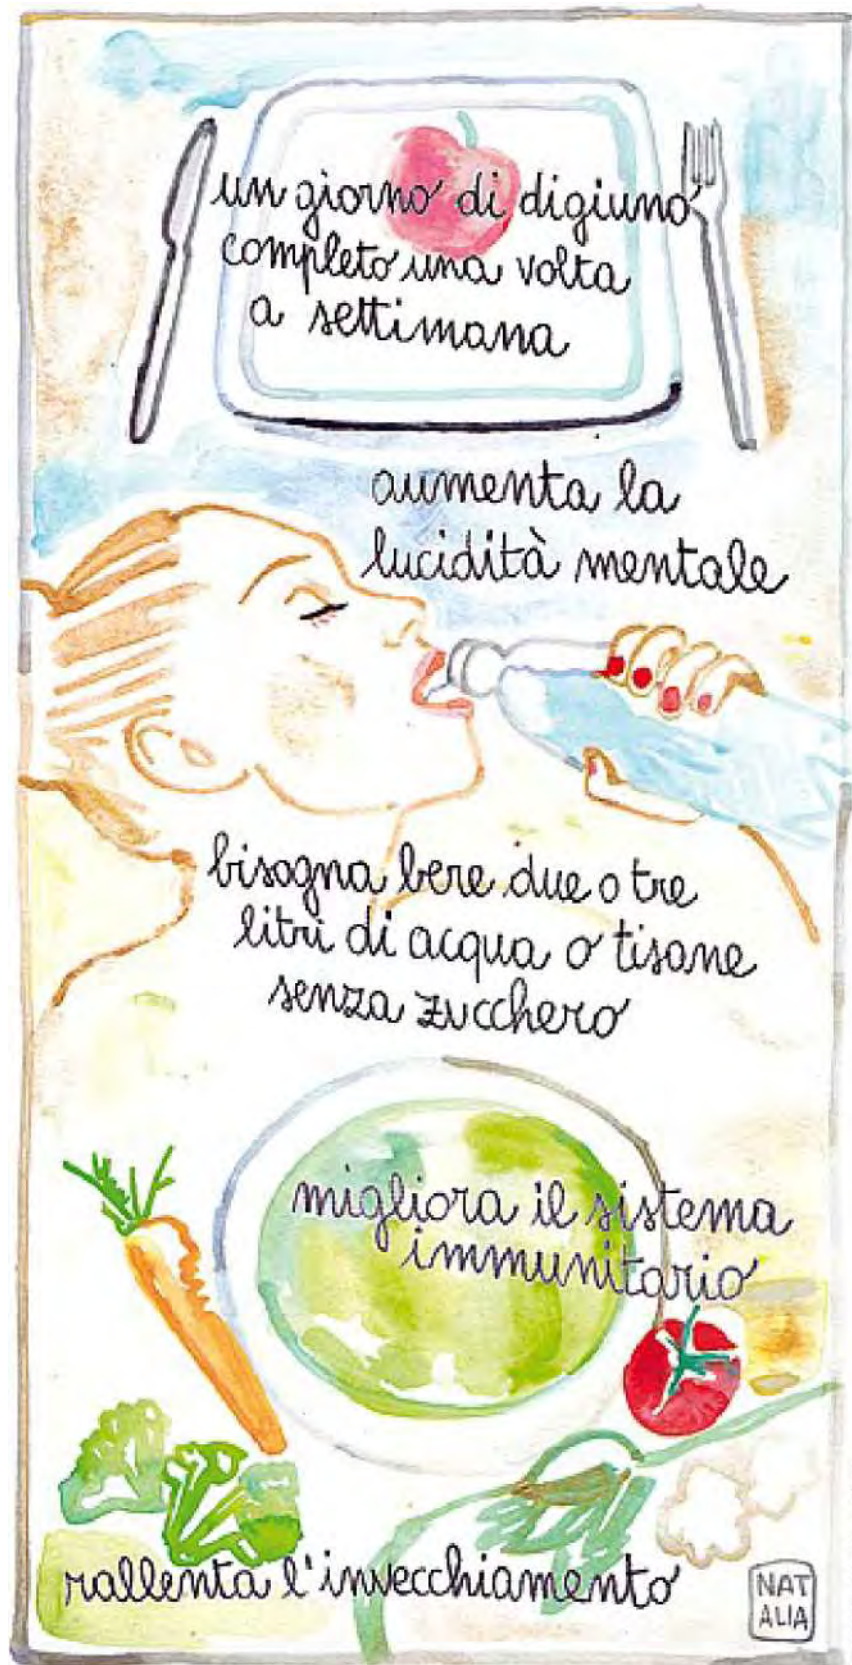 un giorno di digiuno
completo una volta
a settimana
aumenta la
lucidità mentale
bisogna bere due o tre
litri di acqua o tisane
senza zucchero
migliora il sistema
immunitario
rallenta l'invecchiamento
NAT
ALIA